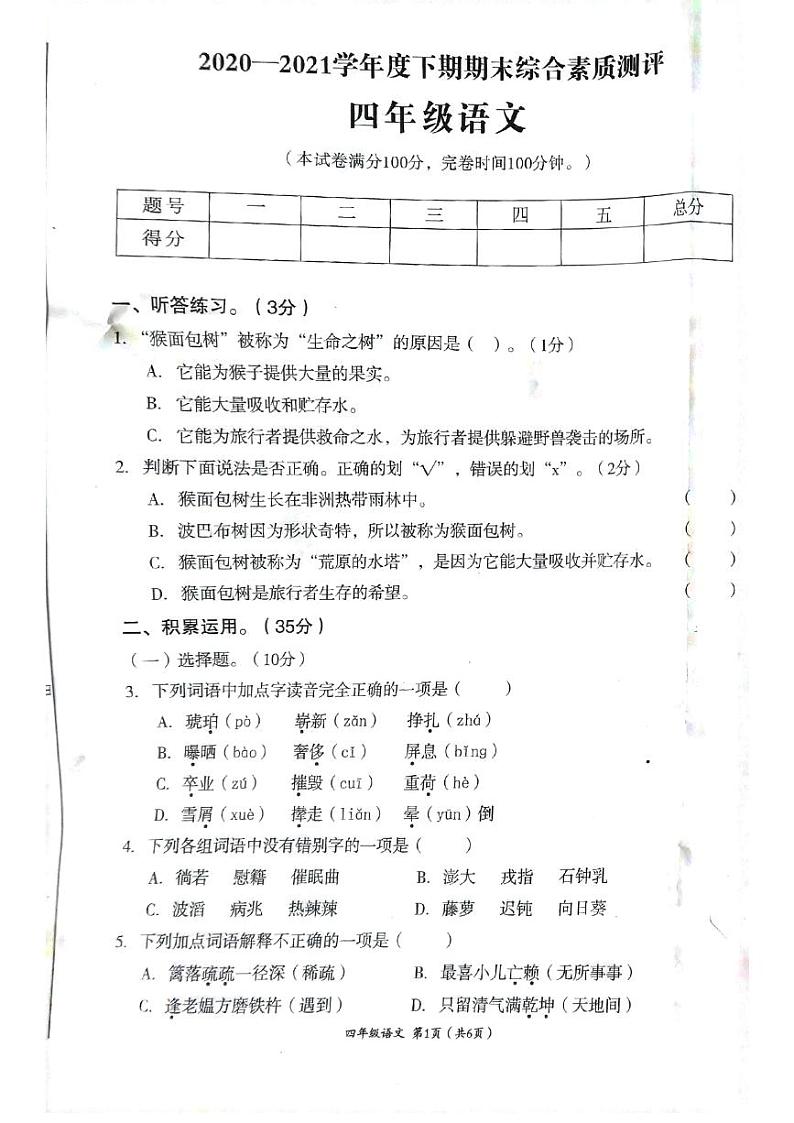 2020—2021学年度下期期末综合素质测评
四年级语文
（本试卷满分100分，完卷时间100分钟。）
题号 一 二 三 四 五 总分
得分
一、听答练习。（3分）
1. “猴面包树”被称为“生命之树”的原因是（ ）。（1分）
A. 它能为猴子提供大量的果实。
B. 它能大量吸收和贮存水。
C. 它能为旅行者提供救命之水，为旅行者提供躲避野兽袭击的场所。
2. 判断下面说法是否正确。正确的划“√”，错误的划“x”。（2分）
A. 猴面包树生长在非洲热带雨林中。 （ ）
B. 波巴布树因为形状奇特，所以被称为猴面包树。 （ ）
C. 猴面包树被称为“荒原的水塔”，是因为它能大量吸收并贮存水。 （ ）
D. 猴面包树是旅行者生存的希望。 （ ）
二、积累运用。（35分）
（一）选择题。（10分）
3. 下列词语中加点字读音完全正确的一项是（ ）
A. 琥珀（pò） 崭新（zǎn） 挣扎（zhá）
B. 曝晒（bào） 奢侈（cǐ） 屏息（bǐng）
C. 卒业（zú） 摧毁（cuī） 重荷（hè）
D. 雪屑（xuè） 撵走（liǎn） 晕（yūn）倒
4. 下列各组词语中没有错别字的一项是（ ）
A. 徜若 慰籍 催眠曲 B. 澎大 戎指 石钟乳
C. 波滔 病兆 热辣辣 D. 藤萝 迟钝 向日葵
5. 下列加点词语解释不正确的一项是（ ）
A. 篱落疏疏一径深（稀疏） B. 最喜小儿亡赖（无所事事）
C. 逢老媪方磨铁杵（遇到） D. 只留清气满乾坤（天地间）
四年级语文 第1页（共6页）